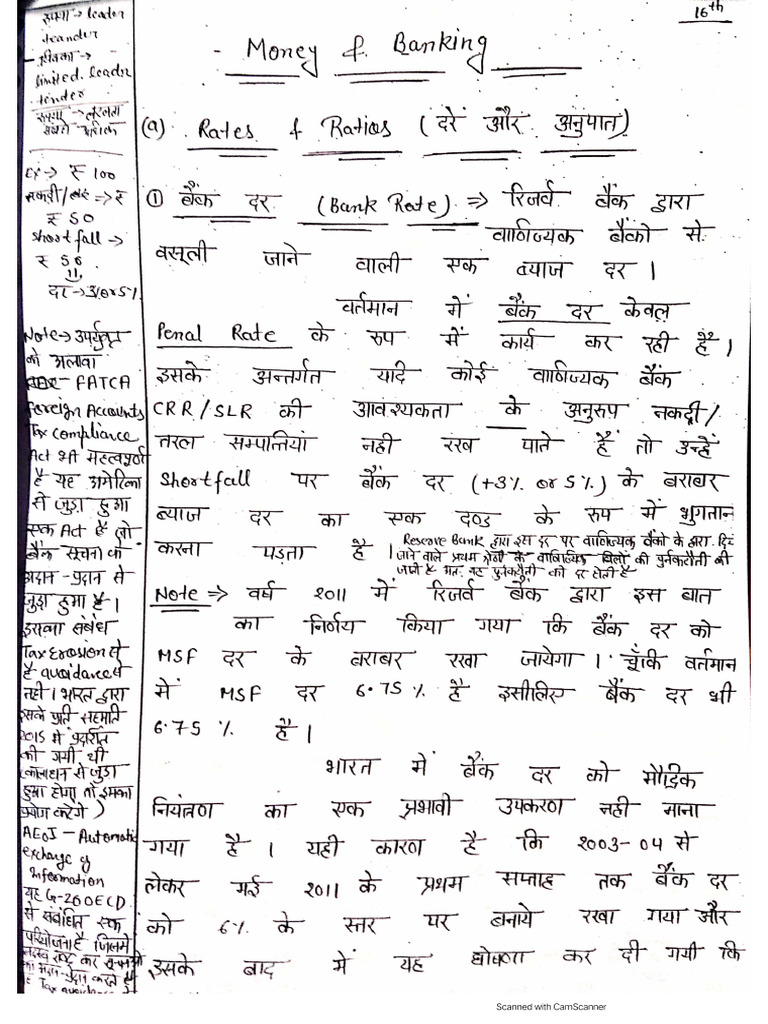 16th
Money & Banking
(a) Rates & Ratios (दरें और अनुपात)
① बैंक दर (Bank Rate) ⇒ रिजर्व बैंक द्वारा
वाणिज्यक बैंको से
वसूली जाने वाली एक ब्याज दर ।
वर्तमान में बैंक दर केवल
Penal Rate के रुप में कार्य कर रही है ।
इसके अन्तर्गत यदि कोई वाणिज्यक बैंक
CRR/SLR की आवश्यकता के अनुरुप नकदी/
तरल सम्पत्तियां नही रख पाते हैं तो उन्हें
Shortfall पर बैंक दर (+3% or 5%) के बराबर
ब्याज दर का एक दण्ड के रुप में भुगतान
करना पड़ता है ।
Reserve Bank द्वारा इस दर पर वाणिज्यिक बैंकों के द्वारा दिए
जाने वाले प्रथम श्रेणी के वाणिज्यिक बिलों की पुर्नकटौती की
जाती है अतः यह पुर्नकटौती की दर होती है
Note ⇒ वर्ष 2011 में रिजर्व बैंक द्वारा इस बात
का निर्णय किया गया कि बैंक दर को
MSF दर के बराबर रखा जायेगा । चूँकि वर्तमान
में MSF दर 6.75 % है इसीलिए बैंक दर भी
6.75 % है ।
भारत में बैंक दर को मौद्रिक
नियंत्रण का एक प्रभावी उपकरण नही माना
गया है । यही कारण है कि 2003-04 से
लेकर मई 2011 के प्रथम सप्ताह तक बैंक दर
को 6% के स्तर पर बनाये रखा गया और
इसके बाद में यह घोषणा कर दी गयी कि
रुपया → leader
limited leader
tender
रुपया → तरलता
सबसे अधिक
Ex → ₹ 100
₹ 50
Shortfall →
₹ 50
दर → 3% or 5%
Note → उपर्युक्त
के अलावा
FATCA
Foreign Accounts
Tax Compliance
Act भी महत्वपूर्ण
है यह अमेरिका
से जुड़ा हुआ
एक Act है (जो
बैंक सूचना के
आदान-प्रदान से
जुड़ा हुआ है ।
इसका संबंध
Tax Erosion से
है avoidance से
नही । भारत द्वारा
इसके प्रति सहमति
2015 में प्रदर्शित
की गयी थी
कालाधन से जुड़ा
हुआ होगा तो इसका
प्रयोग करेंगे )
AEOI - Automatic
exchange of
Information
यह G-20 OECD
से संबंधित एक
परियोजना है जिसमें
Scanned with CamScanner